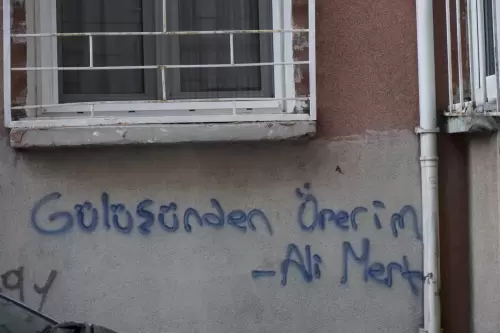 Gülüşünden Önerim
- Ali Mert